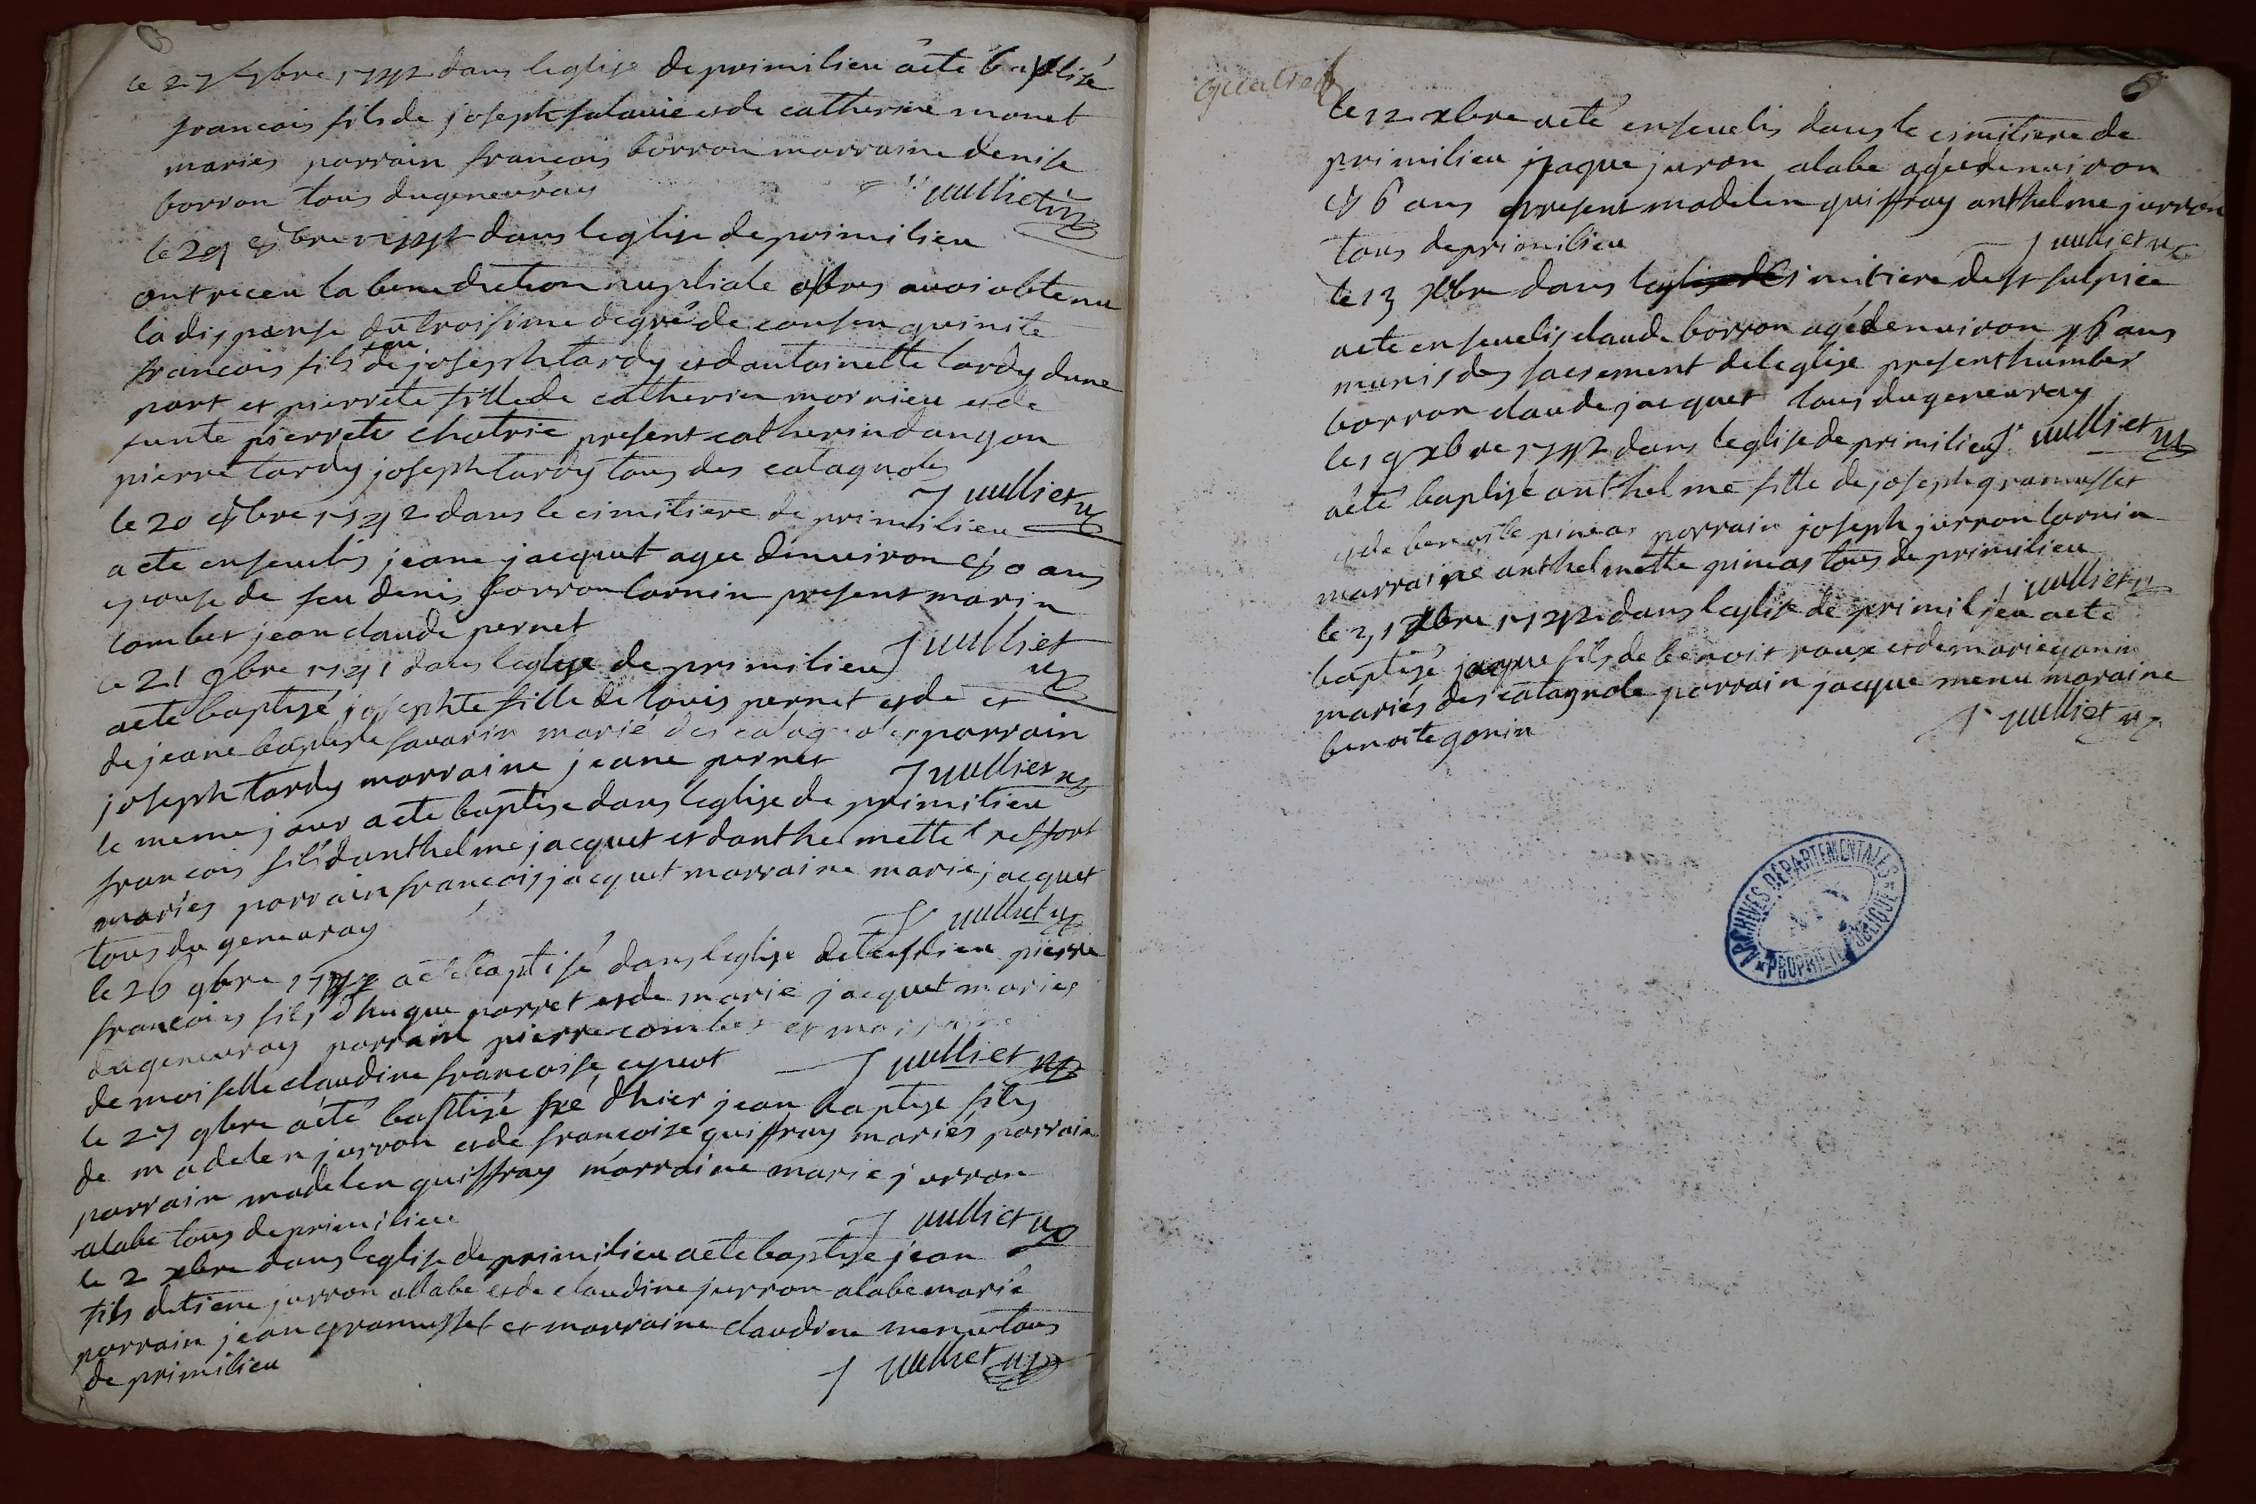 le 27 7bre 1742 dans leglise de primilieu a ete baptisé
francois fils de joseph salavie et de catherine monet
mariés parrain francois borron marraine denise
borron tous du genevray
J vulliet
le 29 8bre dans leglise de primilieu
ont receu la benediction nuptiale apres avoi obtenu
la dispanse du troisime degré de consenguinite
francois fils de feu joseph tardy et dantoinette tardy dune
part et pierrete fille de catherin mornieu et de
funte pierrete chatrié present catherin dangon
pierre tardy joseph tardy tous des catagnoles
J vulliet
le 20 9bre 1742 dans le cimitiere de primilieu
a ete ensevelis jeane jacquet agee denviron 80 ans
epouse de feu denis borron cornin present marin
combet jean claude pernet
J vulliet
le 21 9bre 1741 dans leglise de primilieu
a ete baptisé josephte fille de louis pernet et de et
de jeane baptiste savarin marié des catagnoles parrain
joseph tardy marraine jeane pernet
J vulliet
le meme jour a ete baptise dans leglise de primilieu
francois fils danthelme jacquet et danthelmette treffort
mariés parrain francois jacquet marraine marie jacquet
tous du genevray
J vulliet
le 26 9bre 1742 a ete baptisé dans leglise de pierre
francois fils dhugue parret et de marie jacquet mariés
du genevray parrain pierre combet et marraine
demoiselle claudine francoise
J vulliet
le 27 9bre a eté baptisé né dhier jean baptiste fils
de madelen jurron et de francoise guiffray mariés parrain
parrain madelen guiffray marraine marie jurron
alabe tous de primilieu
J vulliet
le 2 xbre dans leglise de primilieu a ete baptise jean
fils detiene jurron allabe et de claudine jurron alabe marié
parrain jean gramusset et marraine claudine menu tous
de primilieu
J vulliet
quatre
le 12 xbre a eté ensevelis dans le cimitiere de
primilieu jaque juron alabe agé denviron
86 ans present madelen guiffray anthelme jurron
tous de primilieu
J vulliet
le 13 xbre dans leglise de cimitiere de st sulpice
a ete ensevelis claude borron agé denviron 76 ans
munis des sacrement de leglise present humber
borron claude jacquet tous du genevray
J vulliet
le 19 xbre 1742 dans leglise de primilieu
a eté baptisé anthelme fille de joseph gramusset
et de benoite pineas parrain joseph jurron cornin
marraine anthelmette pineas tous de primilieu
J vulliet
le 21 xbre 1742 dans leglise de primilieu a ete
baptisé jaque fils de benoit roux et de marie gonin
mariés des catagnole parrain jacque menu maraine
benoite gonin
J vulliet
ARCHIVES DÉPARTEMENTALES
AIN
PROPRIÉTÉ PUBLIQUE